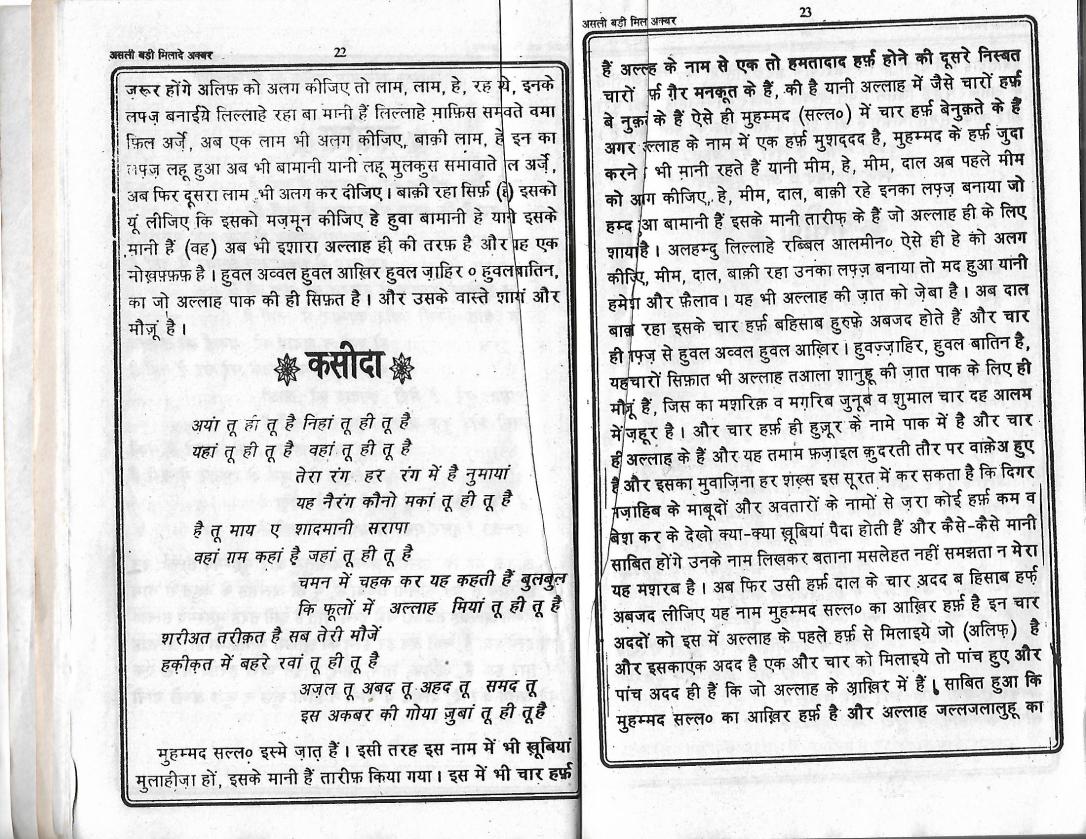 असली बड़ी मिलादे अक्बर
22
ज़रूर होंगे अलिफ़ को अलग कीजिए तो लाम, लाम, हे, रह ये, इनके
लपज़ बनाईये लिल्लाहे रहा बा मानी हैं लिल्लाहे माफ़िस समवते वमा
फ़िल अर्ज़े, अब एक लाम भी अलग कीजिए, बाक़ी लाम, हे इन का
लफ़्ज़ लहू हुआ अब भी बामानी यानी लहू मुलकुस समावाते ल अर्ज़े,
अब फिर दूसरा लाम भी अलग कर दीजिए। बाक़ी रहा सिर्फ़ (हे) इसको
यूं लीजिए कि इसको मज़मून कीजिए हे हुवा बामानी हे यानी इसके
मानी हैं (वह) अब भी इशारा अल्लाह ही की तरफ़ है और यह एक
मोख़फ़्फ़फ़ है। हुवल अव्वल हुवल आख़िर हुवल ज़ाहिर ० हुवल बातिन,
का जो अल्लाह पाक की ही सिफ़त है। और उसके वास्ते शायां और
मौज़ूं है।
कसीदा
अयां तू ही तू है निहां तू ही तू है
यहां तू ही तू है वहां तू ही तू है
तेरा रंग हर रंग में है नुमायां
यह नैरंग कौनो मकां तू ही तू है
है तू माय ए शादमानी सरापा
वहां ग़म कहां है जहां तू ही तू है
चमन में चहक कर यह कहती हैं बुलबुल
कि फूलों में अल्लाह मियां तू ही तू है
शरीअत तरीक़त है सब तेरी मौजें
हक़ीक़त में बहरे रवां तू ही तू है
अज़ल तू अबद तू अहद तू समद तू
इस अकबर की गोया ज़ुबां तू ही तू है
मुहम्मद सल्ल० इस्मे ज़ात हैं। इसी तरह इस नाम में भी ख़ूबियां
मुलाहीज़ा हों, इसके मानी हैं तारीफ़ किया गया। इस में भी चार हर्फ़
असली बड़ी मिल अक्बर
23
हैं अल्लह के नाम से एक तो हमतादाद हर्फ़ होने की दूसरे निस्बत
चारों र्फ़ ग़ैर मनक़ूत के हैं, की है यानी अल्लाह में जैसे चारों हर्फ़
बे नुक़ा के हैं ऐसे ही मुहम्मद (सल्ल०) में चार हर्फ़ बेनुक़ते के हैं
अगर ल्लाह के नाम में एक हर्फ़ मुशददद है, मुहम्मद के हर्फ़ जुदा
करने भी मानी रहते हैं यानी मीम, हे, मीम, दाल अब पहले मीम
को आग कीजिए, हे, मीम, दाल, बाक़ी रहे इनका लफ़्ज़ बनाया जो
हम्द आ बामानी हैं इसके मानी तारीफ़ के हैं जो अल्लाह ही के लिए
शाया है। अलहम्दु लिल्लाहे रब्बिल आलमीन० ऐसे ही हे को अलग
कीजिए, मीम, दाल, बाक़ी रहा उनका लफ़्ज़ बनाया तो मद हुआ यानी
हमेश और फ़ैलाव। यह भी अल्लाह की ज़ात को ज़ेबा है। अब दाल
बाक़ रहा इसके चार हर्फ़ बहिसाब हुरुफ़े अबजद होते हैं और चार
ही फ़्ज़ से हुवल अव्वल हुवल आख़िर। हुवज़्ज़ाहिर, हुवल बातिन है,
यह चारों सिफ़ात भी अल्लाह तआला शानुहू की ज़ात पाक के लिए ही
मौज़ूं हैं, जिस का मशरिक़ व मग़रिब जुनूब व शुमाल चार दह आलम
में ज़हूर है। और चार हर्फ़ ही हुज़ूर के नामे पाक में है और चार
ही अल्लाह के हैं और यह तमाम फ़ज़ाइल क़ुदरती तौर पर वाक़ेअ हुए
है और इसका मुवाज़िना हर शख़्स इस सूरत में कर सकता है कि दिगर
मज़ाहिब के माबूदों और अवतारों के नामों से ज़रा कोई हर्फ़ कम व
बेश कर के देखो क्या-क्या ख़ूबियां पैदा होती हैं और कैसे-कैसे मानी
साबित होंगे उनके नाम लिखकर बताना मसलेहत नहीं समझता न मेरा
यह मशरब है। अब फिर उसी हर्फ़ दाल के चार अदद ब हिसाब हर्फ़
अबजद लीजिए यह नाम मुहम्मद सल्ल० का आख़िर हर्फ़ है इन चार
अददों को इस में अल्लाह के पहले हर्फ़ से मिलाइये जो (अलिफ़) है
और इसकाएक अदद है एक और चार को मिलाइये तो पांच हुए और
पांच अदद ही हैं कि जो अल्लाह के आख़िर में हैं। साबित हुआ कि
मुहम्मद सल्ल० का आख़िर हर्फ़ है और अल्लाह जल्लजलालुहू का